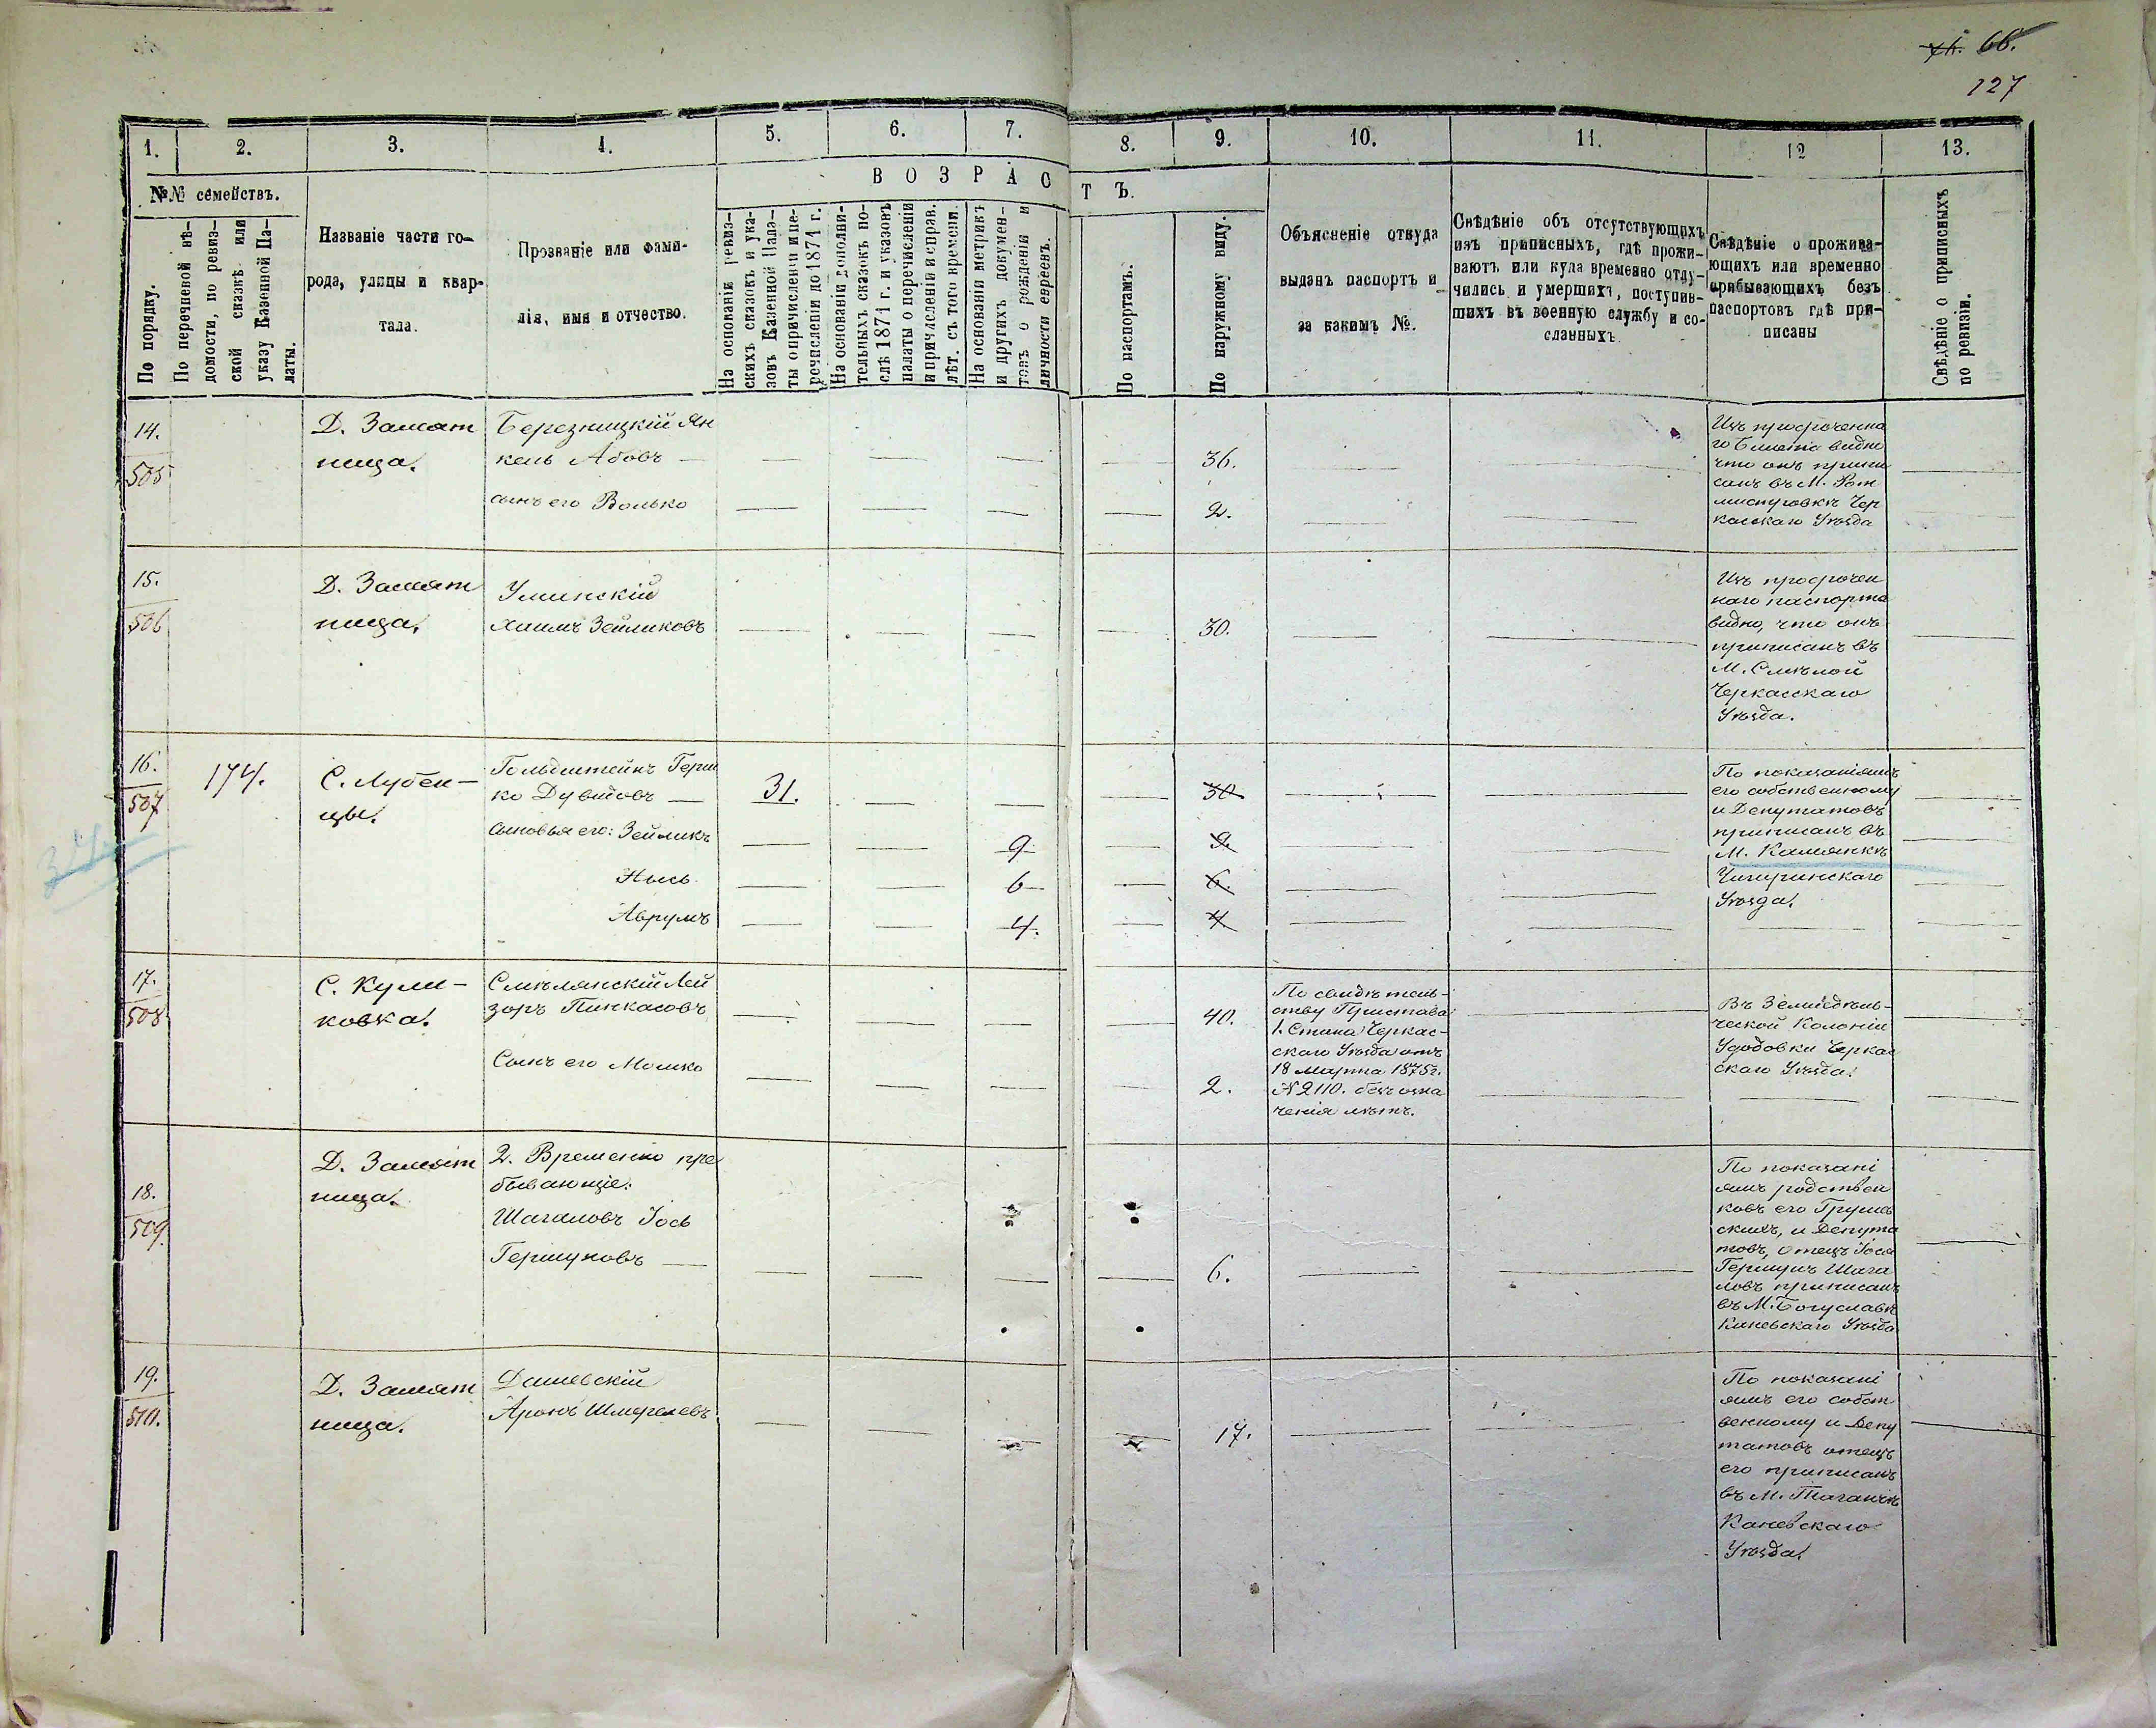 66.
127
1.
2.
3.
4.
5.
6.
7.
8.
9.
10.
11.
12
13.
№№ семействъ.
По порядку.
По перечневой вѣ-
домости, по ревиз-
ской сказкѣ или
указу Казенной Па-
латы.
Названіе части го-
рода, улицы и квар-
тала.
Прозваніе или фами-
лія, имя и отчество.
ВОЗРАСТЪ.
На основаніи ревиз-
скихъ сказокъ и ука-
зовъ Казенной Пала-
ты о причисленіи и пе-
речисленіи до 1874 г.
На основаніи дополни-
тельныхъ сказокъ по-
слѣ 1874 г. и указовъ
палаты о перечисленіи
и причисленіи и справ.
лѣт. съ того времени.
На основаніи метрикъ
и другихъ докумен-
товъ о рожденіи и
личности евреевъ.
По паспортамъ.
По наружному виду.
Объясненіе откуда
выданъ паспортъ и
за какимъ №.
Свѣдѣніе объ отсутствующихъ
изъ приписныхъ, гдѣ прожи-
ваютъ или куда временно отлу-
чились и умершихъ, поступив-
шихъ въ военную службу и со-
сланныхъ
Свѣдѣніе о прожива-
ющихъ или временно
прибывающихъ безъ
паспортовъ гдѣ при-
писаны
Свѣдѣніе о приписныхъ
по ревизіи.
14.
505
Д. Замят
ница.
Березницкій Ян
кель Абовъ —
36.
сынъ его Волько
2.
Изъ просроченна
го билета видно
что онъ припи
санъ въ М.
Чер
касскаго Уѣзда
15.
506
Д. Замят
ница.
Уманскій
Хаимъ Зейликовъ
30.
Изъ просрочен
наго паспорта
видно, что онъ
приписанъ въ
М. Смѣлой
Черкасскаго
Уѣзда.
16.
507
174.
С. Лубен-
цы.
Гольдштейнъ Герш
ко Дувидовъ —
31.
30
сыновья его: Зейликъ
9
9.
Нысь
6
6.
Аврумъ
4.
4
По показаніямъ
его собственному
и Депутатовъ
приписанъ въ
М. Камянкѣ
Чигиринскаго
Уѣзда.
17.
508
С. Кули-
ковка.
Смѣлянскій Лей
зоръ Пинкасовъ
40.
Сынъ его Мошко
2.
По свидѣтель-
ству Пристава
1. Стана Черкас-
скаго Уѣзда отъ
18 Марта 1875 г.
№ 2110. безъ озна
ченія лѣтъ.
Въ Земледѣль-
ческой Колоніи
Удобовки Черкас
скаго Уѣзда.
18.
509
Д. Замят
ница.
2. Временно пре
бывающіе.
Шагаловъ Іось
Гершуновъ —
6.
По показані
ямъ родствен
ковъ его Грушев
скихъ, и Депута
товъ, отецъ Іося
Гершунъ Шага
ловъ приписанъ
въ М. Богуславѣ
Каневскаго Уѣзда
19.
510.
Д. Замят
ница.
Дашевскій
Аронъ Шмерелевъ
17.
По показані
ямъ его собст
венному и Депу
татовъ отецъ
его приписанъ
въ М. Таганчѣ
Каневскаго
Уѣзда.